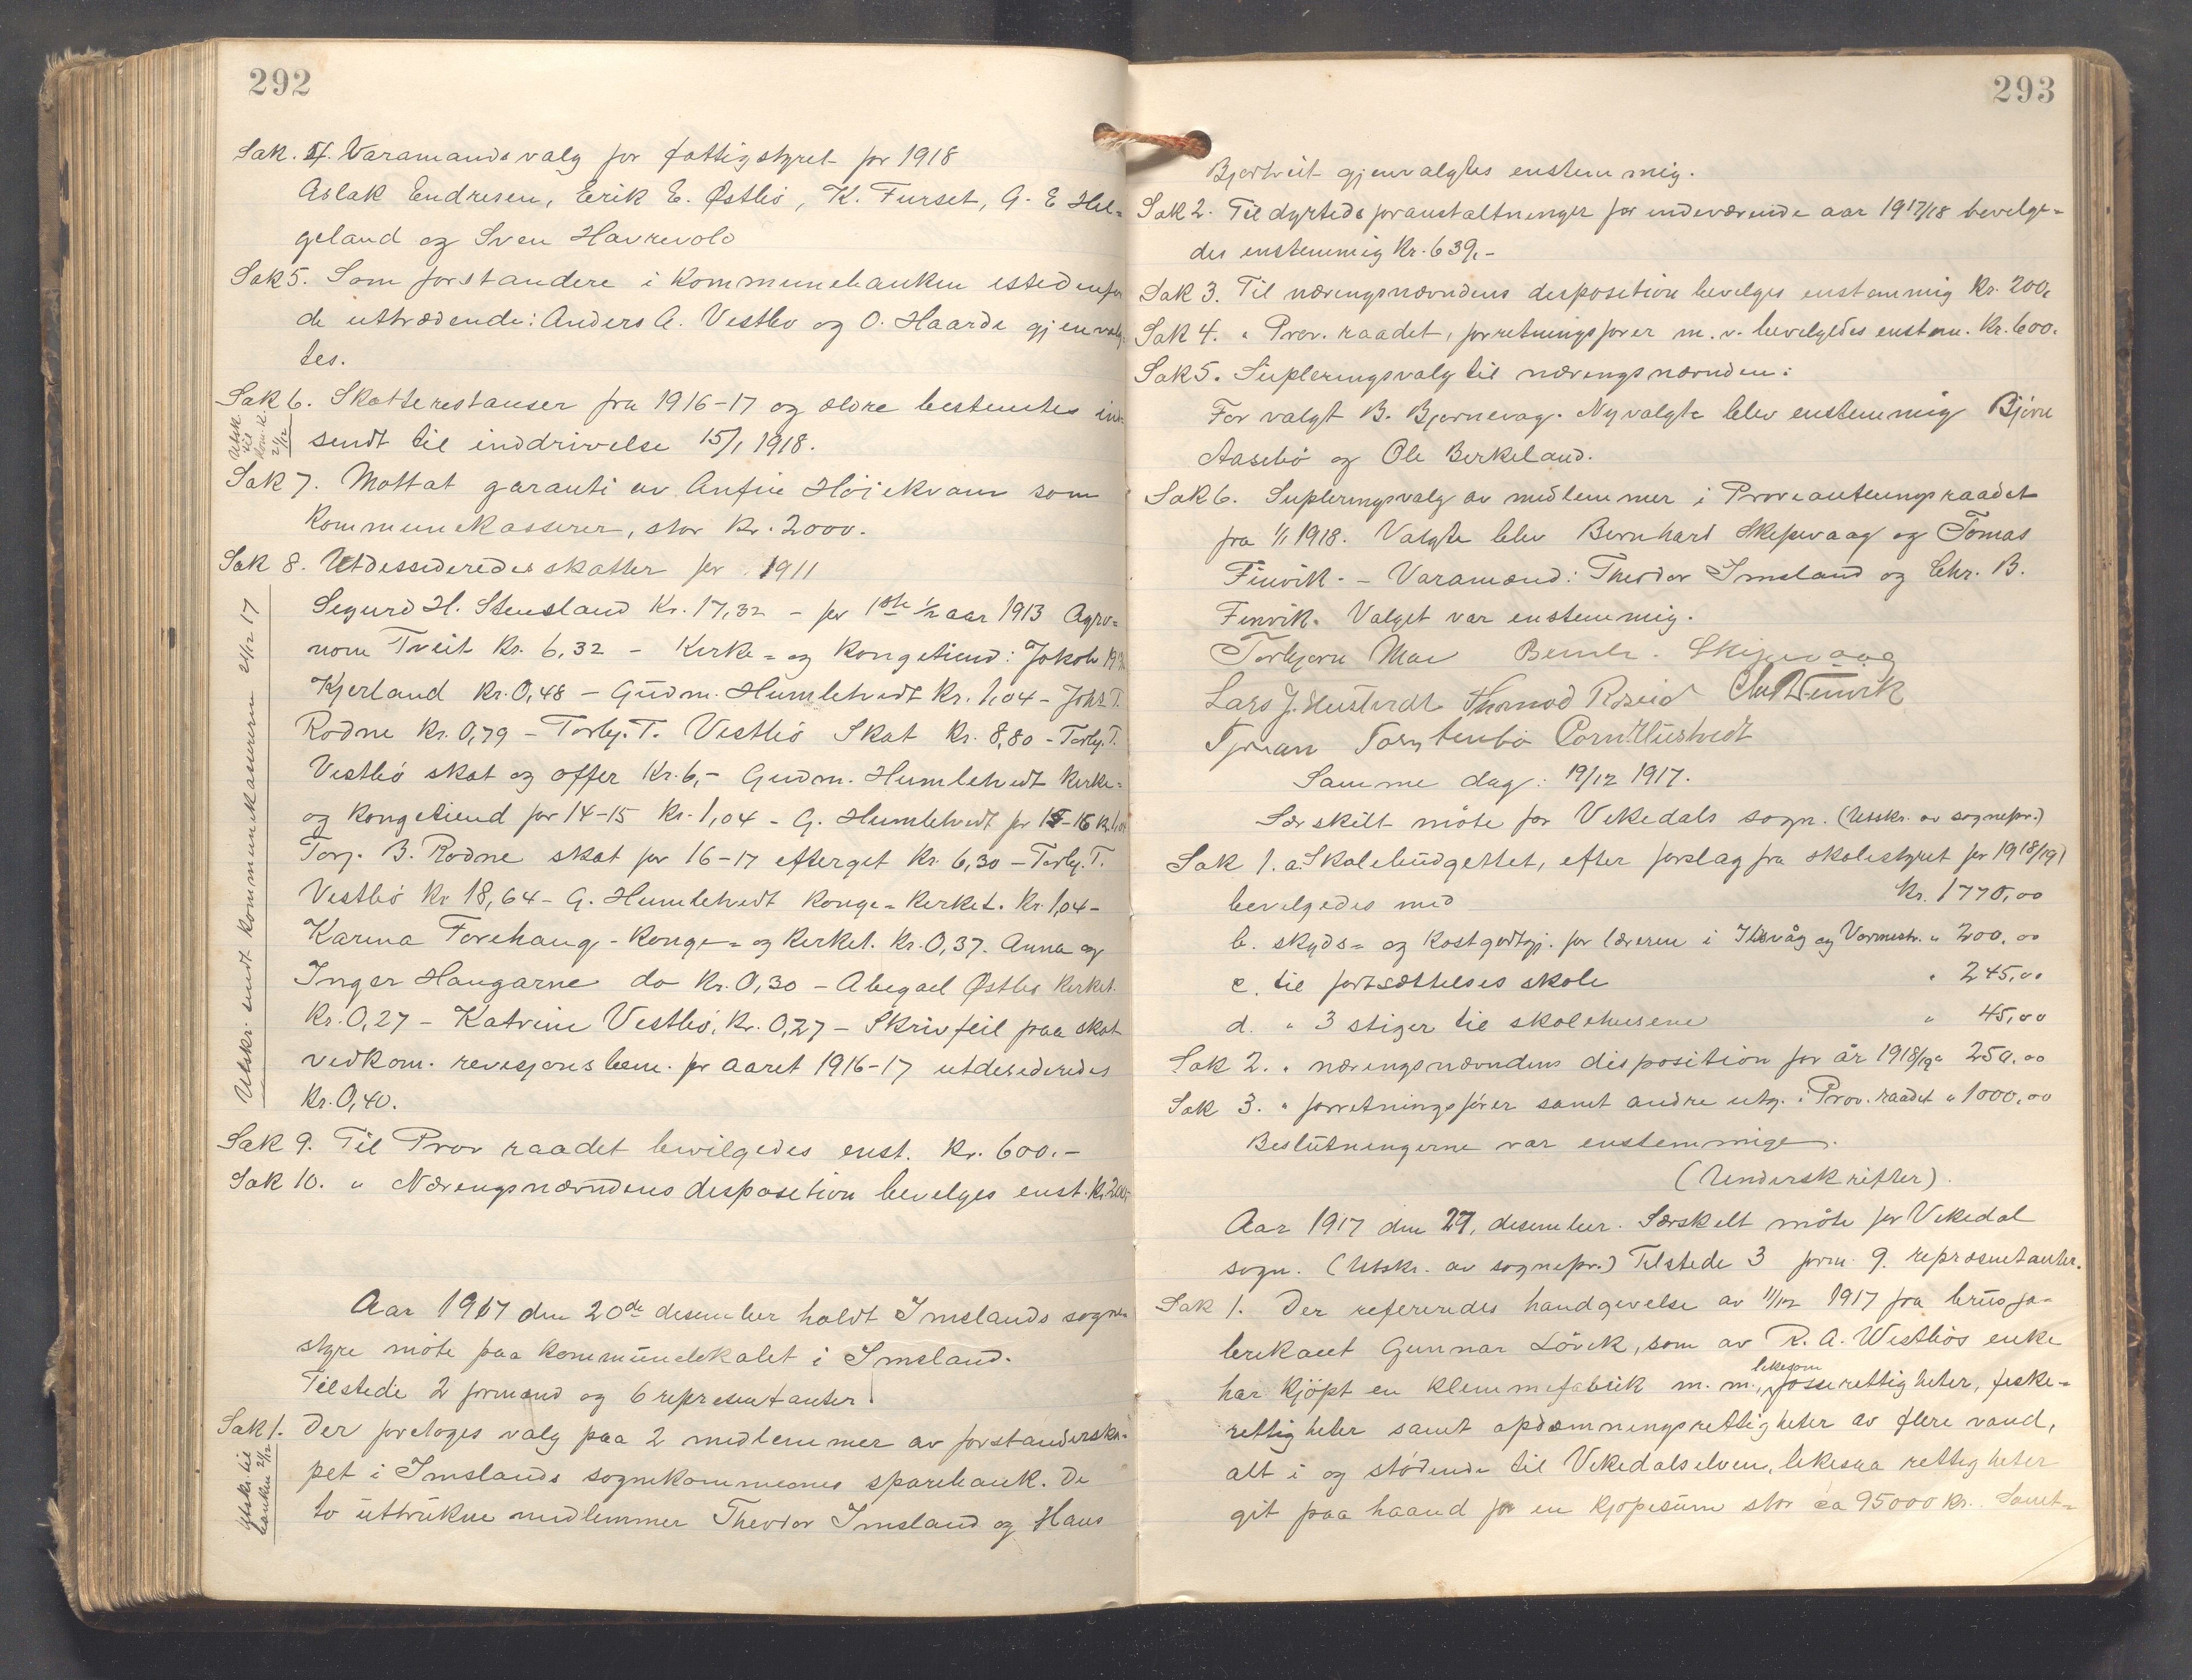 292
Sak. 4. Varamandsvalg for fattigstyret for 1918
Aslak Endresen, Eerik E. Østbö, K. Furset, G. E Hel=
geland og Sven Havrevold
Sak 5. Som forstandere i kommunebanken istedenfor
de uttrædende: Anders A. Vestbö og O. Haarde gjenvalg-
tes.
Sak 6. Skatterestanser fra 1916-17 og ældre bestemtes ind-
sendt til inddrivelse 15/1 1918.
Utsk. til kom.k. 21/12
Sak 7. Mottat garanti av Anfin Höiekvam som
kommunekasserer, stor Kr. 2000.
Sak 8. Utdessideredes skatter for 1911
Segurd H. Stensland Kr. 17,32 - for 1ste 1/2 aar 1913 Agro=
nom Tveit Kr. 6,32 - Kirke= og Kongetiend: Jakob
Kjerland Kr. 0,48 - Gudm. Humlebredt Kr. 1,04 - Johs T.
Rodne Kr. 0,79 - Torbj. T. Vestbö Skat Kr. 8,80 - Torbj. T.
Vestbö skat og offer Kr. 6,- Gudm. Humlehvedt kirke=
og kongetiend for 14-15 Kr. 1,04 - G. Humlehvedt for 15-16 Kr 1,04
Torj. B. Rodne skat for 16-17 efterget Kr. 6,30 - Torbj. T.
Vestbö Kr 18,64 - G. Humlehvedt konge= kirket. Kr. 1,04 -
Karina Forehaug - konge= og kirket. Kr. 0,37. Anna og
Inger Haugarne do Kr. 0,30 - Abegael Østbö kirket.
Kr. 0,27 - Katrine Vestbö, Kr. 0,27 - Skrivfeil paa skat
vedkom. revisjons bem. for aaret 1916-17 utdesideredes
Kr. 0,40.
Utskr. sendt kommunekasseren 21/12 17
Sak 9. Til Prov raadet bevilgedes enst. Kr. 600.-
Sak 10. " Næringsnævndens desposition bevelges enst. Kr. 200,-
Aar 1917 den 20de desember holdt Imslands sogne-
styre möte paa kommunelokalet i Imsland.
Tilstede 2 formænd og 6 representanter.
Sak 1. Der foretoges valg paa 2 medlemmer av forstanderska-
pet i Imslands sognekommunes sparebank. De
to uttrukne medlemmer Theodor Imsland og Hans
Utskr. til banken 21/12
293
Bjortveit gjenvalgtes enstemmig.
Sak 2. Til dyrtidsforanstaltninger for indeværende aar 1917/18 bevelge=
des enstemmig Kr. 639,-
Sak 3. Til næringsnævndens desposition bevelges enstemmig Kr. 200,
Sak 4. " Prov. raadet, forretningsförer m. v. bevelgedes enstem. Kr. 600.
Sak 5. Supleringsvalg til næringsnævnden:
For valgt B. Bjornevag. Nyvalgte blev enstemmig Björn
Aasebö og Ole Berkeland.
Sak 6. Supleringsvalg av medlemmer i Provianteringsraadet
fra 1/1 1918. Valgte blev Bernhard Skipevaag og Tomas
Finvik. - Varamænd: Theodor Imsland og Chr. B.
Finvik. Valget var enstemmig.
Torbjorn Mæ Bernh. Skipevaag
Lars J. Hustvedt Thomod Röseid Chr B Finvik
Torstenbö Corn. Hustvedt
Samme dag: 19/12 1917.
Særskilt möte for Vikedals sogn. (Utskr. av sognepr.)
Sak 1. a. Skolebudgettet, efter forslag fra skolestyret for 1918/19)
bevelgedes med Kr. 1770,00
b. skyds= og kostgodtgj. for læreren i Ilsvåg og Vormestr. " 200.00
c. til fortsættelses skole " 245,00
d. " 3 stiger til skolehusene " 45,00
Sak 2. " næringsnævndens disposition for år 1918/19 " 250.00
Sak 3. " forretningsförer samt andre utg. i Prov. raadet " 1000,00
Beslutningerne var enstemmige.
(Underskrifter).
Aar 1917 den 27, desember. Særskelt möte for Vikedal
sogn. (Utskr. av sognepr.) Tilstede 3 form. 9. repræsentanter.
Sak 1. Der refereredes handgivelse av 11/12 1917 fra brusfa-
brikant Gunnar Lövik, som av R. A. Westbös enke
har kjöpt en klemmefabrik m. m., likesom fosserettigheter, fiske=
rettigheter samt opdæmningsrettigheter av flere vand,
alt i og stödende til Vikedalselven, likesaa rettigheter
git paa haand for en kjöpesum stor ca 95000 Kr. Samt=